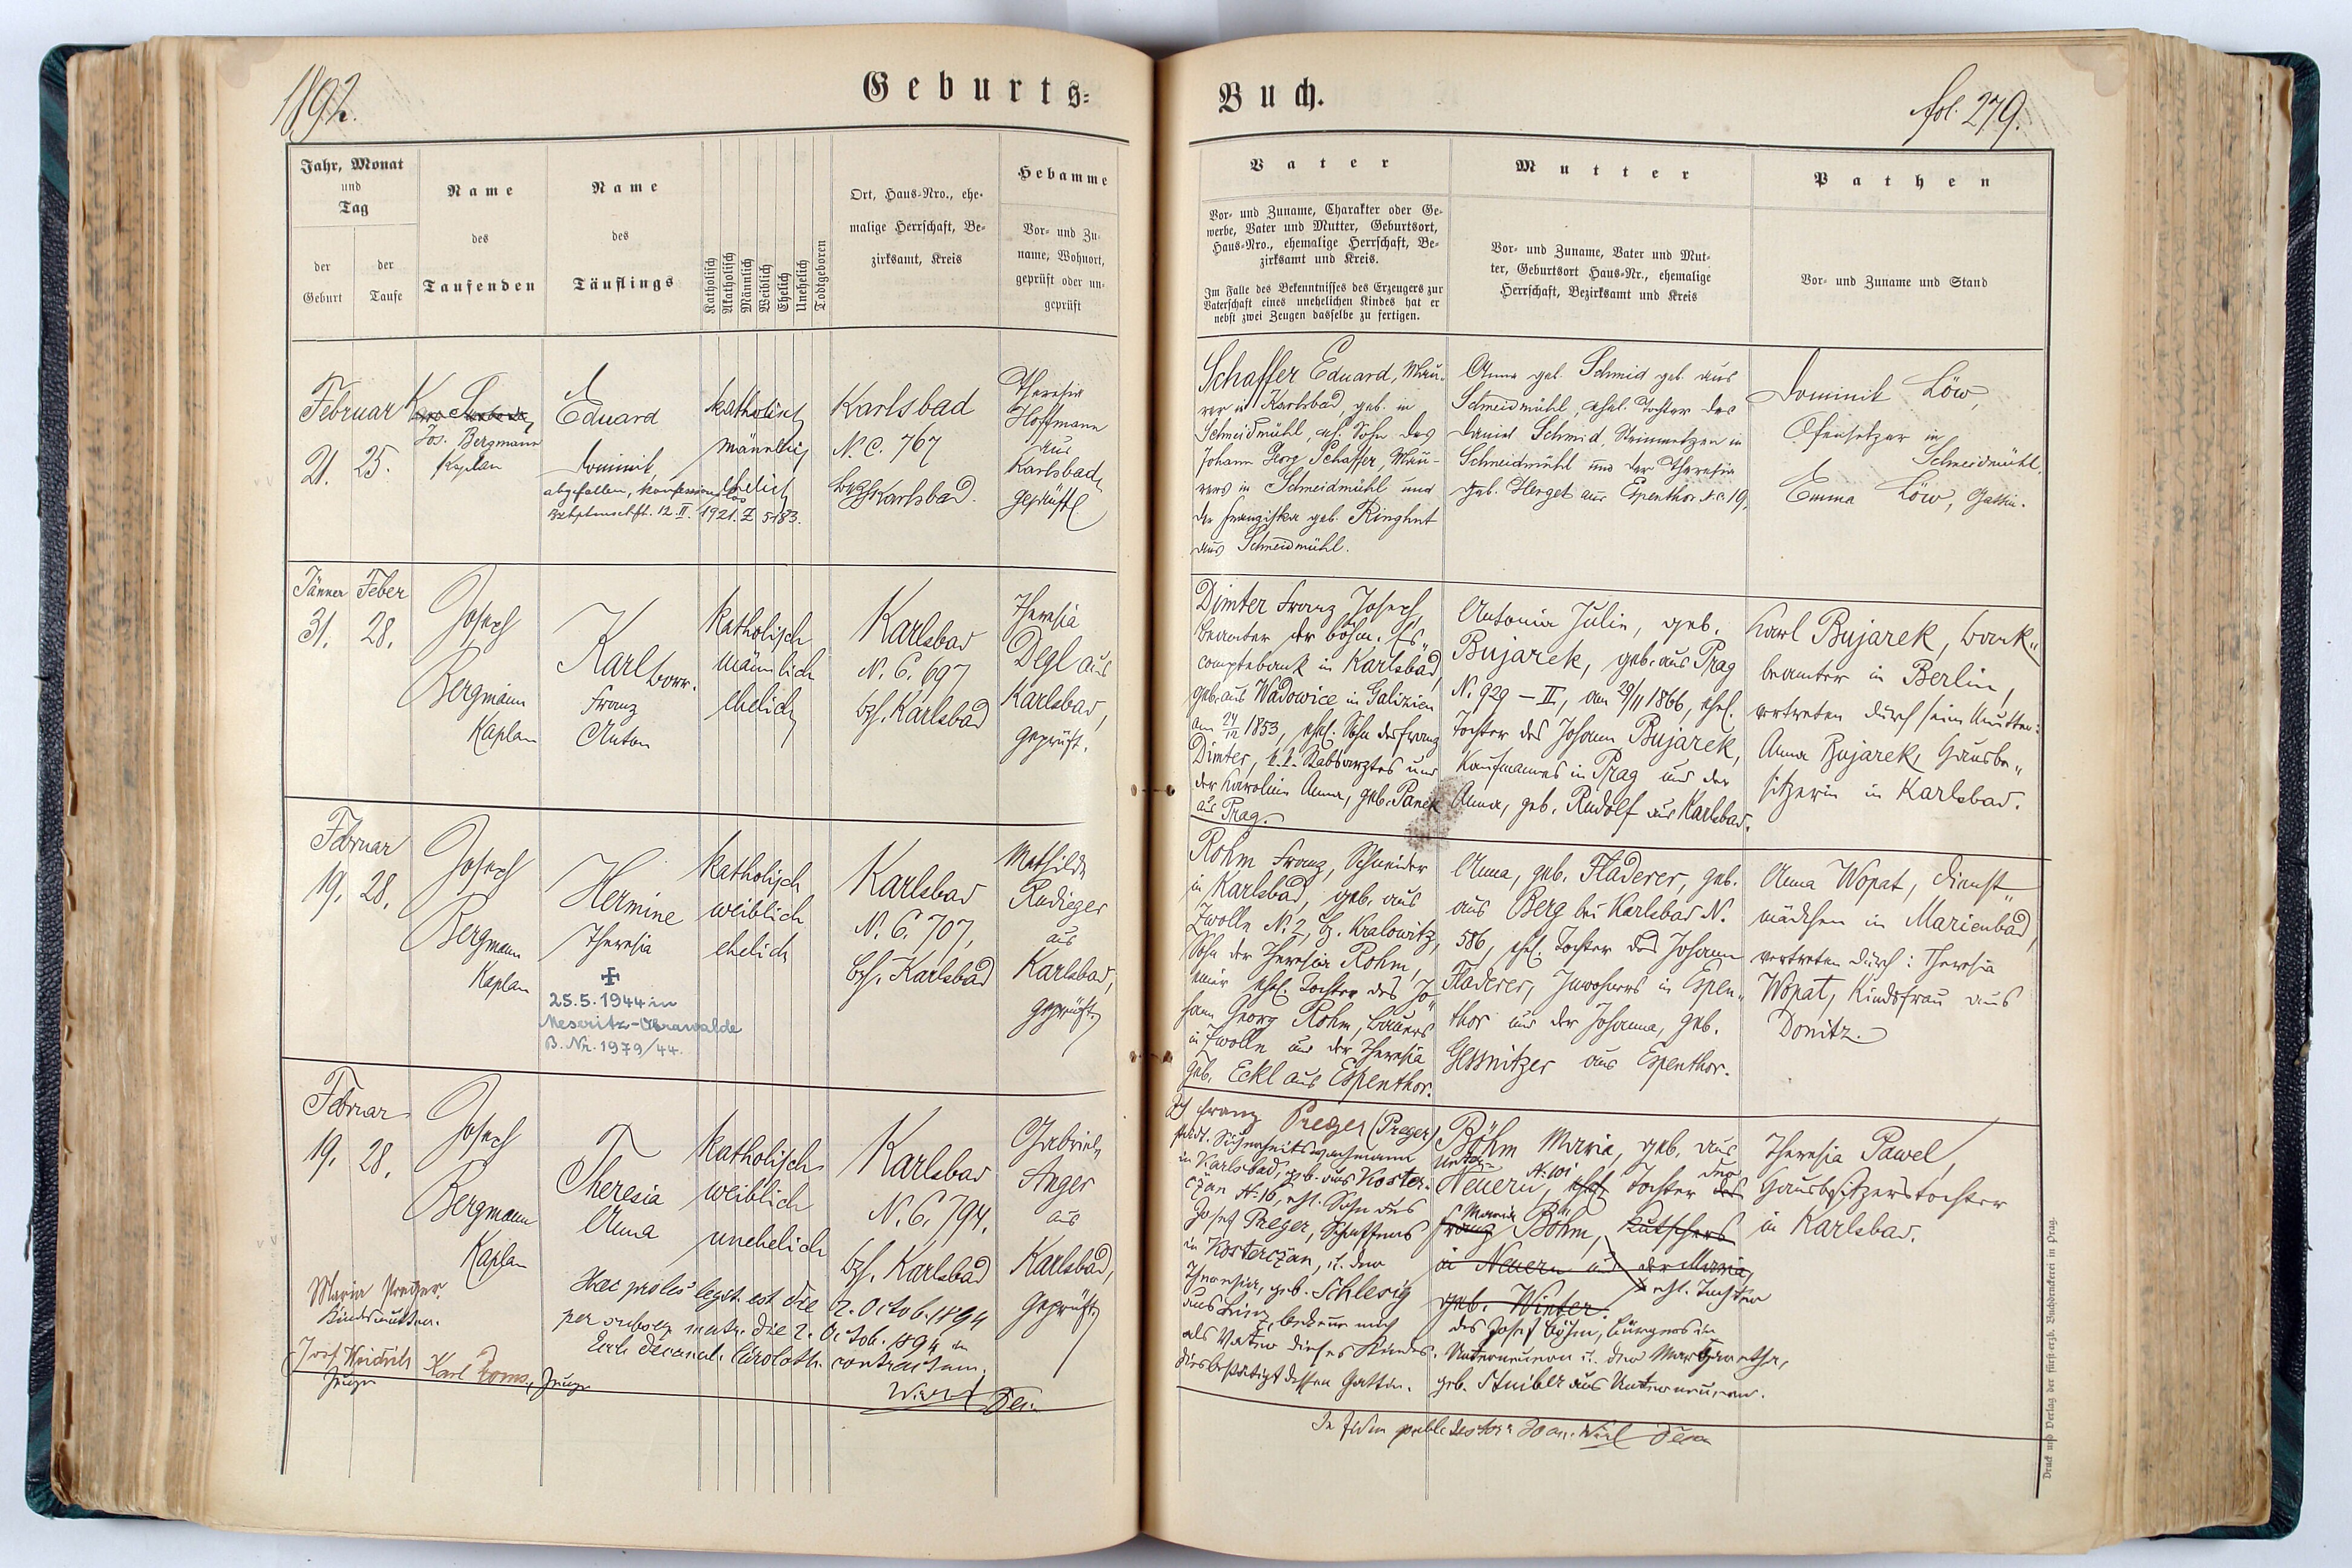 1892.
Geburts=
Buch.
fol. 279.
Jahr, Monat
und
Tag
der
Geburt
der
Taufe
Name
des
Taufenden
Name
des
Täuflings
Katholisch
Akatholisch
Männlich
Weiblich
Ehelich
Unehelich
Todtgeboren
Ort, Haus-Nro., ehe-
malige Herrschaft, Be-
zirksamt, Kreis
Hebamme
Vor- und Zu-
name, Wohnort,
geprüft oder un-
geprüft
Vater
Vor- und Zuname, Charakter oder Ge-
werbe, Vater und Mutter, Geburtsort,
Haus-Nro., ehemalige Herrschaft, Be-
zirksamt und Kreis.
Im Falle des Bekenntnisses des Erzeugers zur
Vaterschaft eines unehelichen Kindes hat er
nebst zwei Zeugen dasselbe zu fertigen.
Mutter
Vor- und Zuname, Vater und Mut-
ter, Geburtsort Haus-Nr., ehemalige
Herrschaft, Bezirksamt und Kreis
Pathen
Vor- und Zuname und Stand
Februar
21. 25.
Jos. Bergmann
Kaplan
Eduard
Dominik
abgefallen, konfessionslos
Bzhptmschft. 12. II. 1921. Z 5183.
katholisch
männlich
ehelich
Karlsbad
N. C. 767
Bzh Karlsbad.
Theresia
Hoffmann
aus
Karlsbad
geprüft
Schaffer Eduard, Mau-
rer in Karlsbad, geb. in
Schneidmühl, ehl. Sohn des
Johann Georg Schaffer, Mau-
rers in Schneidmühl und
der Franziska geb. Ringhut
aus Schneidmühl.
Anna geb. Schmid geb. aus
Schneidmühl, ehel. Tochter des
Daniel Schmid, Steinmetzen in
Schneidmühl und der Theresia
geb. Herget aus Espenthor N.C. 19,
Dominik Löw,
Ofensetzer in
Schneidmühl.
Emma Löw, Gattin.
Jänner Feber
31. 28.
Joseph
Bergmann
Kaplan
Karl Borr.
Franz
Anton
katholisch
männlich
ehelich
Karlsbad
N. C. 697
bzh. Karlsbad
Theresia
Degl aus
Karlsbad,
geprüft.
Dimter Franz Joseph,
Beamter der böhm. Es-
comptebank in Karlsbad,
geb. aus Wadowice in Galizien
am 24/12 1853, ehel. Sohn des Franz
Dimter, k. k. Stabsarztes und
der Karolina Anna, geb. Panek
aus Prag.
Antonia Julie, geb.
Bujarek, geb. aus Prag
N. 929 – II, am 29/11 1866, ehel.
Tochter des Johann Bujarek,
Kaufmannes in Prag und der
Anna, geb. Rudolf aus Karlsbad.
Karl Bujarek, Bank-
beamter in Berlin,
vertreten durch seine Mutter:
Anna Bujarek, Hausbe-
sitzerin in Karlsbad.
Februar
19. 28.
Joseph
Bergmann
Kaplan
Hermine
Theresia
25.5.1944 in
Meseritz-Obrawalde
B. Nr. 1979/44.
katholisch
weiblich
ehelich
Karlsbad
N. C. 707,
bzh. Karlsbad
Mathilde
Rudiger
aus
Karlsbad,
geprüft.
Rohm Franz, Schneider
in Karlsbad, geb. aus
Zwolle N. 2, B. Kralowitz,
Sohn der Theresia Rohm,
einer ehel. Tochter des Jo-
hann Georg Rohm, Bauers
in Zwolle und der Theresia
geb. Eckl aus Espenthor.
Anna, geb. Fladerer, geb.
aus Berg bei Karlsbad N.
586, ehel. Tochter des Johann
Fladerer, Inwohners in Espen-
thor und der Johanna, geb.
Gessnitzer aus Espenthor.
Anna Wopat, Dienst-
mädchen in Marienbad,
vertreten durch: Theresia
Wopat, Kindsfrau aus
Donitz.
Februar
19. 28.
Joseph
Bergmann
Kaplan
Theresia
Anna
katholisch
weiblich
unehelich
Karlsbad
N. C. 794.
bzh. Karlsbad
Gabriele
Anger
aus
Karlsbad,
geprüft.
Maria Preger
Kindsmutter.
Haec proles legit. est die 2. Octob. 1894
per subseq. matr. die 2. Octob. 1894 in
Eccl. decanal. Caroloth. contractum.
Josef Heidrich
Zeuge
Karl Toms, Zeuge
Wirl Dec.
Ich Franz Preger (Preger)
städt. Sicherheitswachmann
in Karlsbad, geb. aus Koster-
czan N. 16, ehl. Sohn des
Josef Preger, Schaffners
in Kosterczan, u. der
Theresia, geb. Schlesig
aus Lein, bekenne mich
als Vater dieses Kindes.
dies bestätigt dessen Gattin.
Böhm Maria, geb. aus
Unter-
Neuern, N. 101 ehel. Tochter des der
Franz Maria Böhm, Kutschers
in Neuern und der Maria,
geb. Winter. ehl. Tochter
des Josef Böhm, Bürgers in
Unterneuern u. der Margaretha,
geb. Stuibll aus Unterneuern.
Theresia Pawel,
Hausbesitzerstochter
in Karlsbad.
In fidem Joan. Wirl Decan
Druck und Verlag der fürst-erzb. Buchdruckerei in Prag.